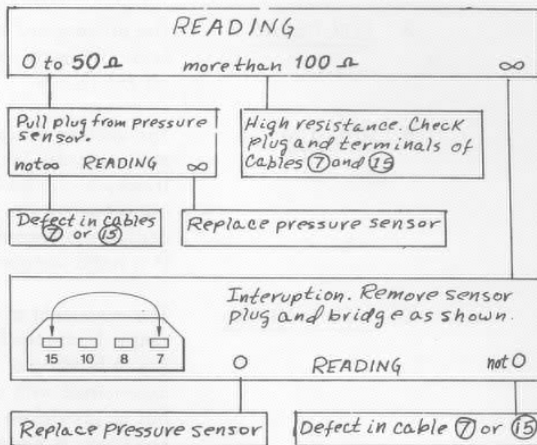 READING
0 to 50Ω more than 100 Ω ∞
Pull plug from pressure
sensor.
not∞ READING ∞
High resistance. Check
plug and terminals of
Cables ⑦ and ⑮
Defect in cables
⑦ or ⑮
Replace pressure sensor
Interuption. Remove sensor
plug and bridge as shown.
15 10 8 7
0 READING not 0
Replace pressure sensor
Defect in cable ⑦ or ⑮